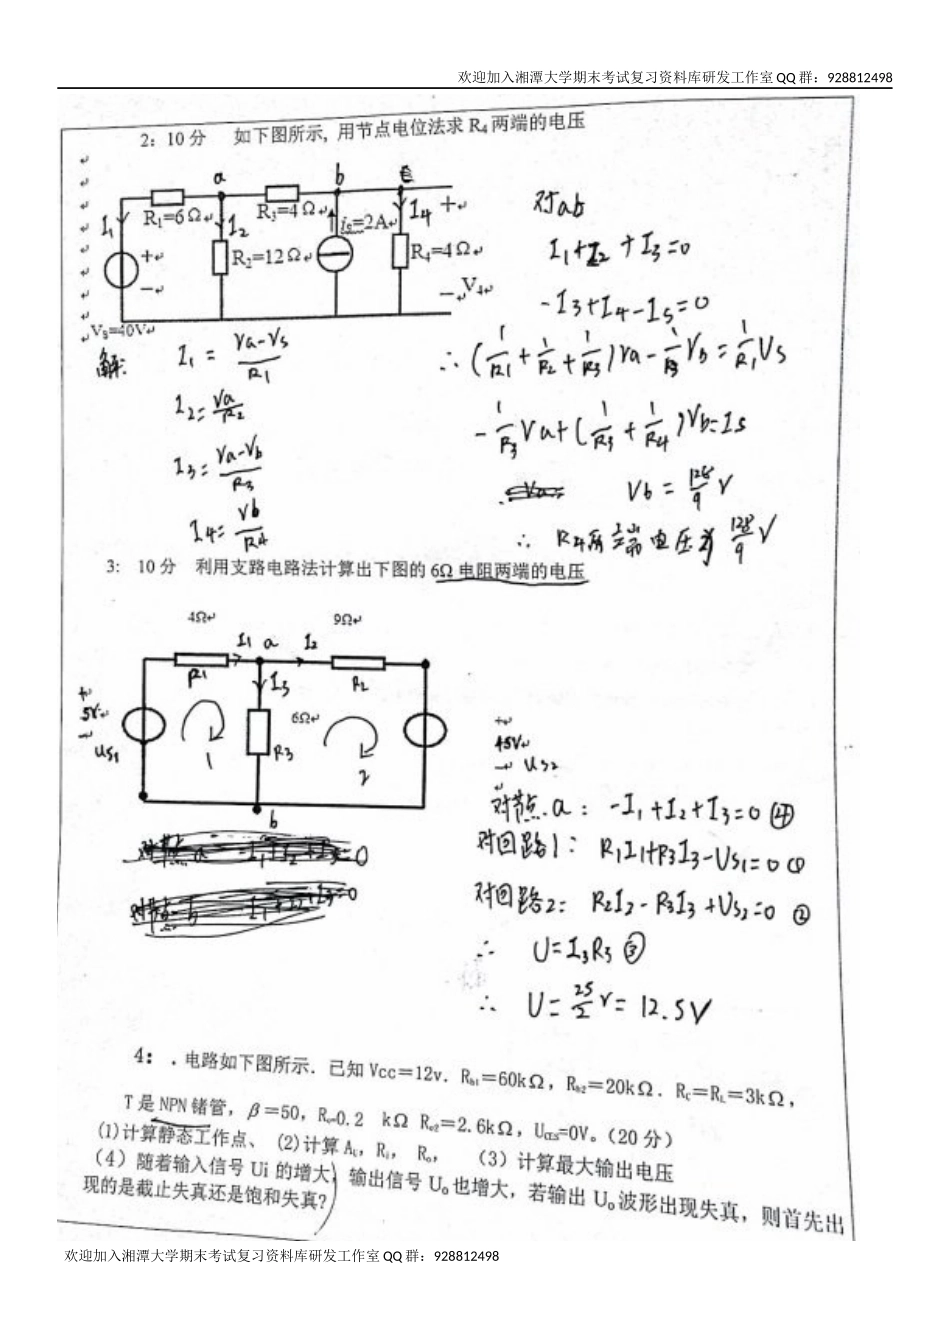 欢迎加入湘潭大学期末考试复习资料库研发工作室 QQ 群：928812498
2: 10 分 如下图所示, 用节点电位法求 R₄ 两端的电压
a b
R₁=6Ω R₃=4Ω
I₁ I₂ iₛ=2A I₄ +
+ R₂=12Ω R₄=4Ω
− − V₄
Vₛ=40V
对ab
I₁+I₂+I₃=0
-I₃+I₄-Iₛ=0
∴(1/R₁+1/R₂+1/R₃)Va-1/R₃Vb=1/R₁Us
-1/R₃Va+(1/R₃+1/R₄)Vb=Is
Vb=128/9 V
∴ R₄两端电压为 128/9 V
解:
I₁=(Va-Vs)/R₁
I₂=Va/R₂
I₃=(Va-Vb)/R₃
I₄=Vb/R₄
3: 10 分 利用支路电路法计算出下图的 6Ω 电阻两端的电压
4Ω 9Ω
I₁ a I₂
R₁ I₃ R₂
+ 5V - US₁
6Ω
R₃
1 2
b
+ 45V - US₂
对节点.a: -I₁+I₂+I₃=0 ④
对回路1: R₁I₁+R₃I₃-US₁=0 ①
对回路2: R₂I₂-R₃I₃+US₂=0 ②
∴ U=I₃R₃ ③
∴ U=25/2 V=12.5V
4: . 电路如下图所示. 已知 Vcc=12v. R_b1=60kΩ, R_b2=20kΩ. R_C=R_L=3kΩ,
T 是 NPN 锗管, β=50, R_e=0.2 kΩ R_e2=2.6kΩ, U_CES=0V。(20 分)
(1)计算静态工作点、 (2)计算 A_u, R_i, R_o, (3) 计算最大输出电压
(4) 随着输入信号 Ui 的增大, 输出信号 Uₒ也增大, 若输出 Uₒ波形出现失真, 则首先出
现的是截止失真还是饱和失真?
欢迎加入湘潭大学期末考试复习资料库研发工作室 QQ 群：928812498